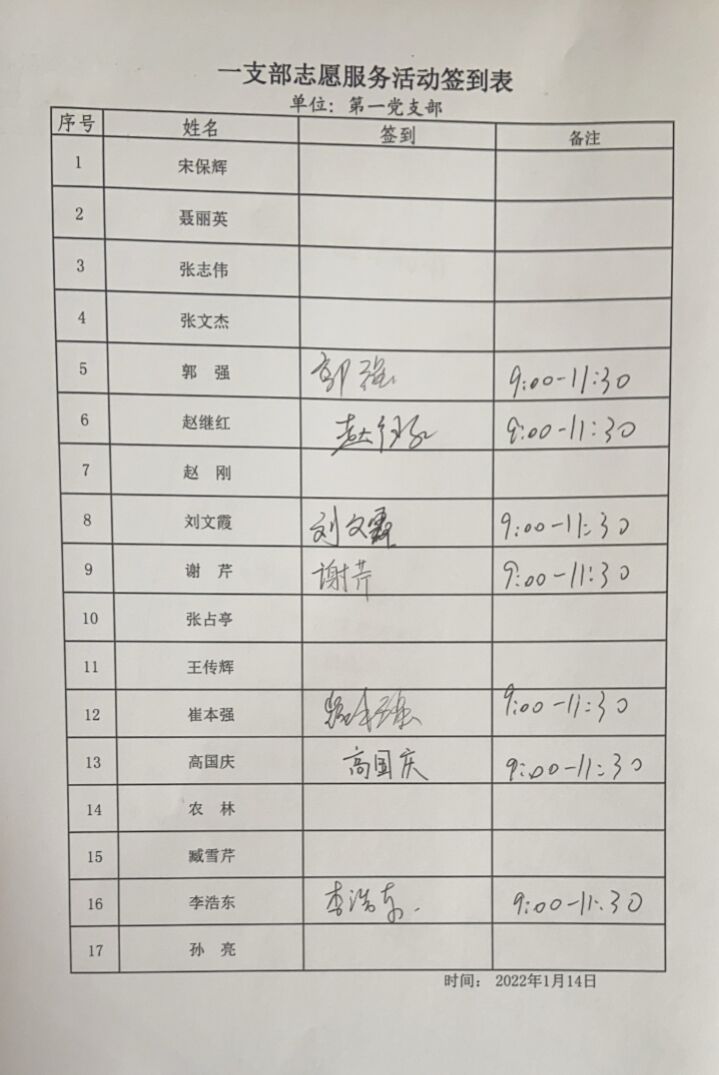 一支部志愿服务活动签到表
单位：第一党支部
序号 姓名 签到 备注
1 宋保辉
2 聂丽英
3 张志伟
4 张文杰
5 郭 强 郭强 9:00-11:30
6 赵继红 赵继红 9:00-11:30
7 赵 刚
8 刘文霞 刘文霞 9:00-11:30
9 谢 芹 谢芹 9:00-11:30
10 张占亭
11 王传辉
12 崔本强 崔本强 9:00-11:30
13 高国庆 高国庆 9:00-11:30
14 农 林
15 臧雪芹
16 李浩东 李浩东. 9:00-11:30
17 孙 亮
时间： 2022年1月14日